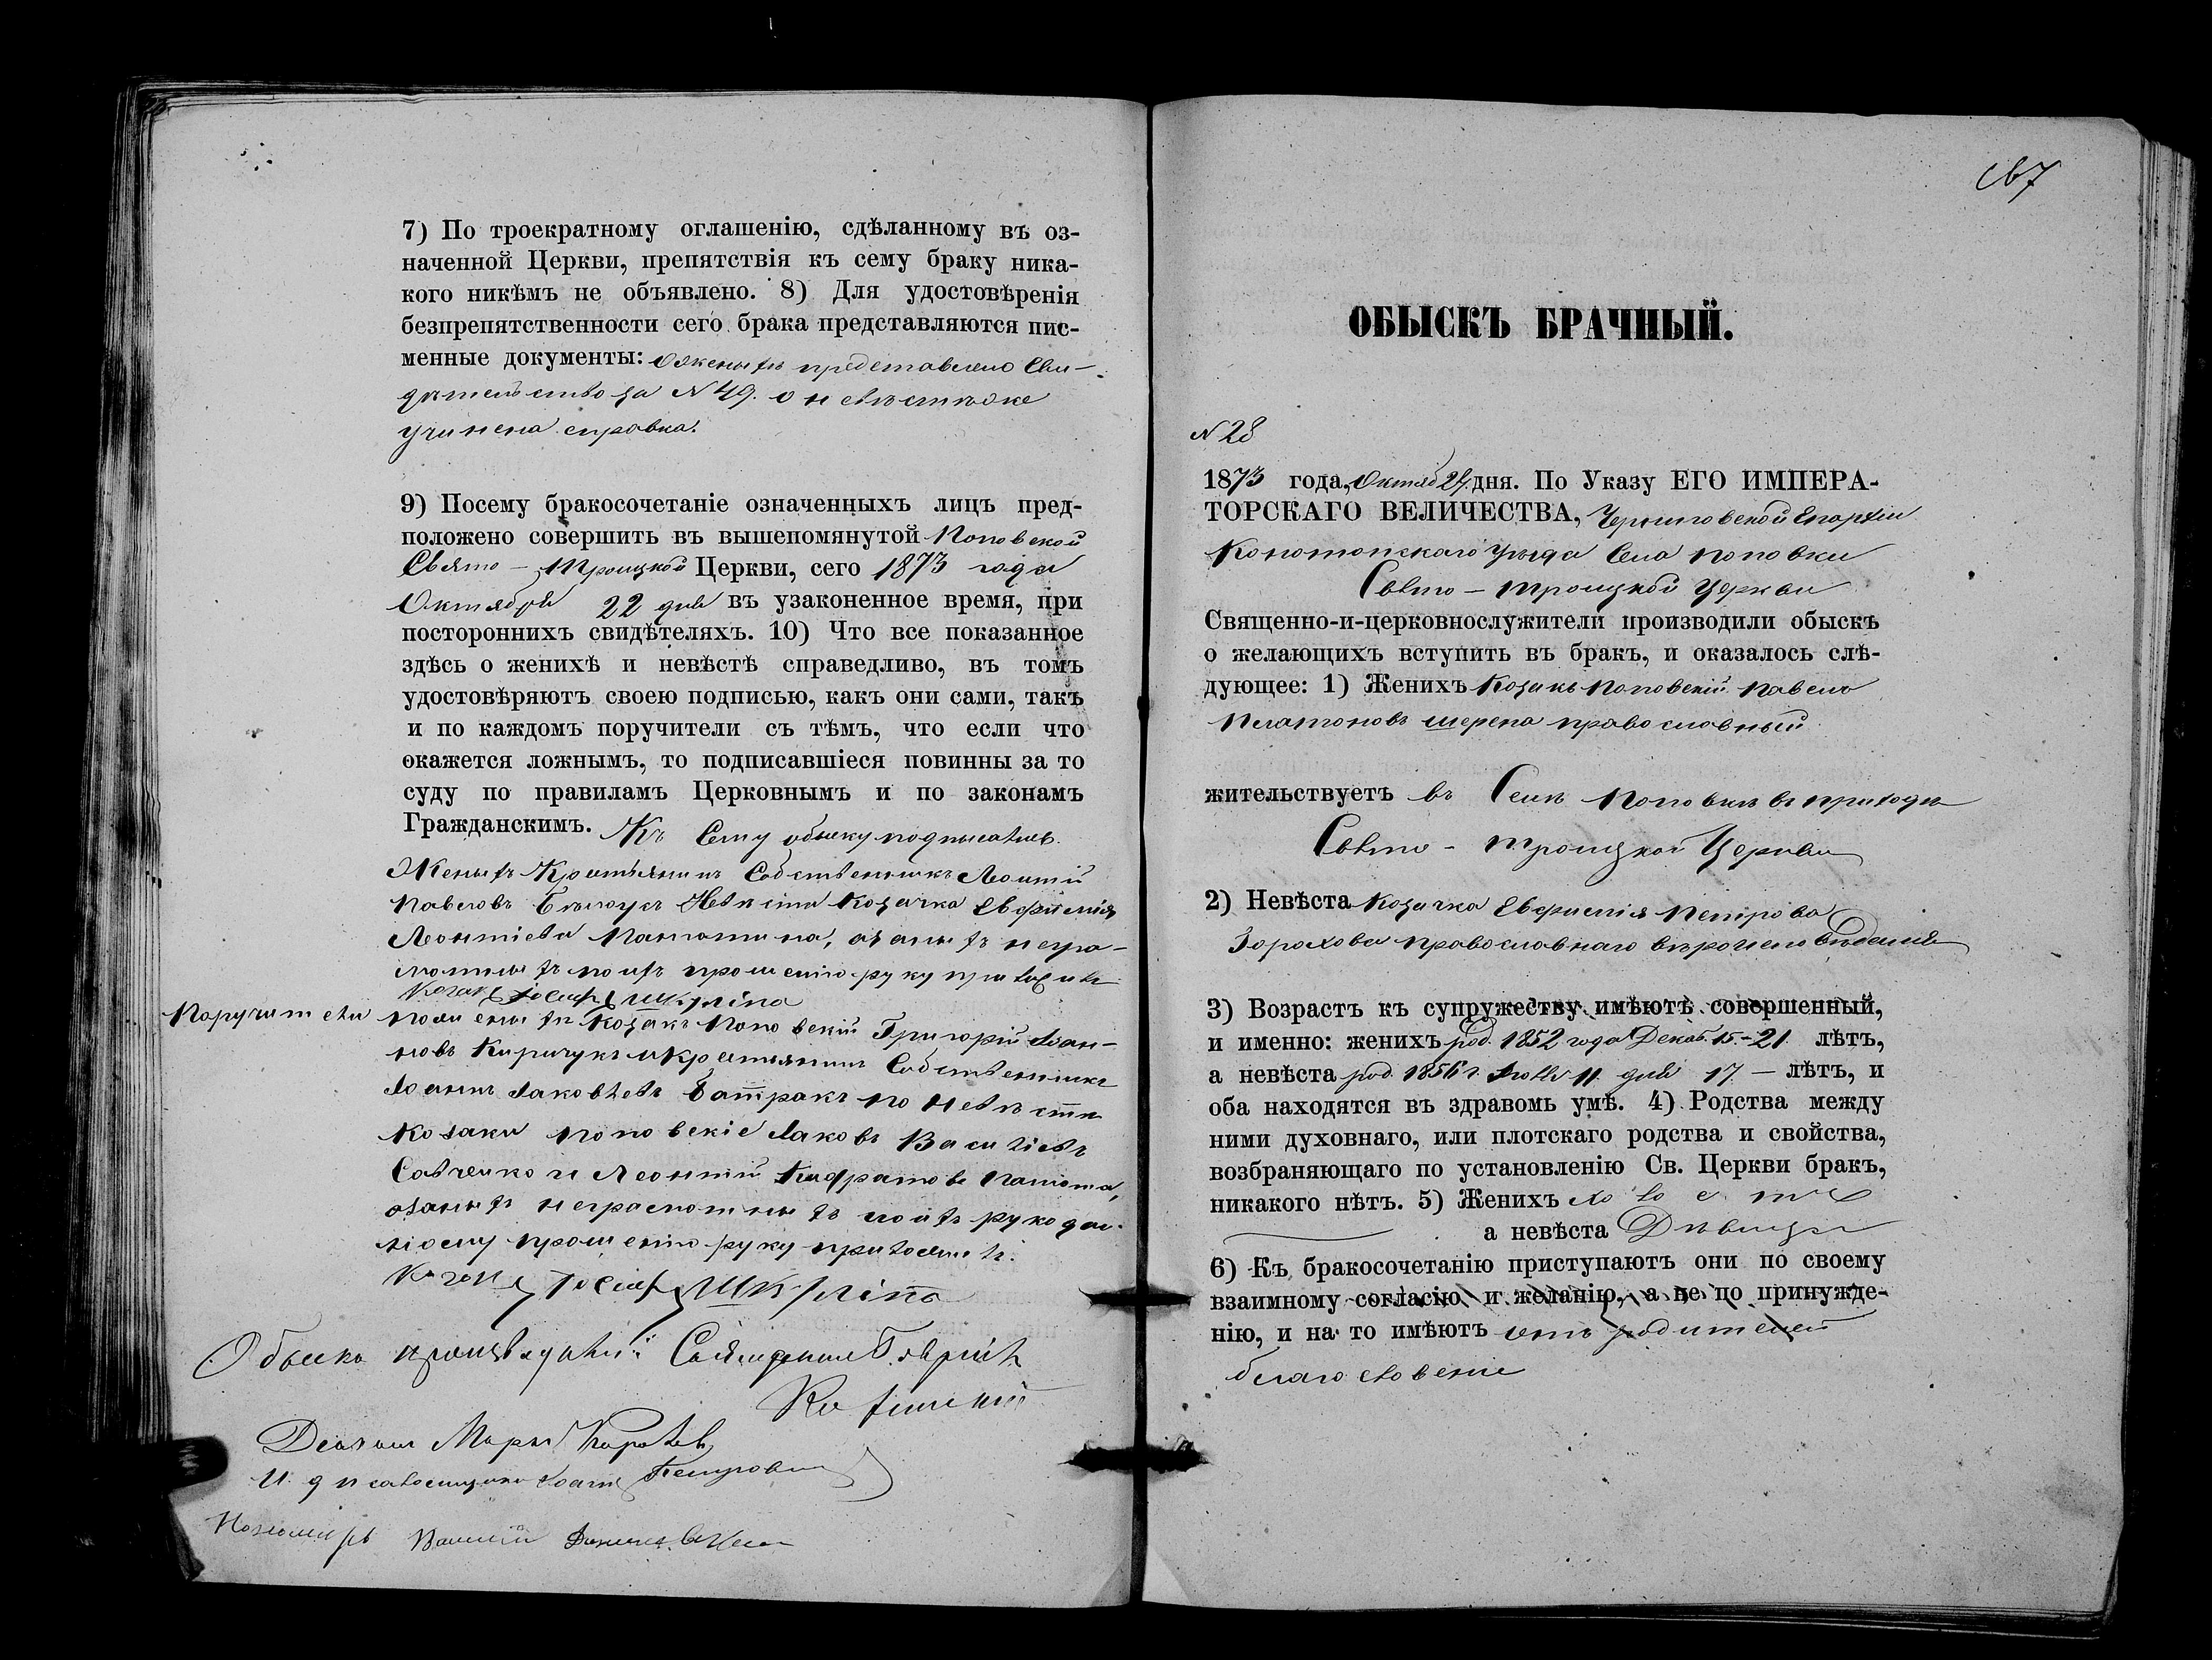 7) По троекратному оглашенію, сдѣланному въ оз-
наченной Церкви, препятствія къ сему браку ника-
кого никѣмъ не объявлено. 8) Для удостовѣренія
безпрепятственности сего брака представляются пис-
менные документы: О женихѣ представлено Сви-
дѣтельство за № 49. о невѣстѣ же
учинена справка.
9) Посему бракосочетаніе означенныхъ лицъ пред-
положено совершить въ вышепомянутой Поповской
Свято - Троицкой Церкви, сего 1873 года
Октября 22 дня въ узаконенное время, при
постороннихъ свидѣтеляхъ. 10) Что все показанное
здѣсь о женихѣ и невѣстѣ справедливо, въ томъ
удостовѣряютъ своею подписью, какъ они сами, такъ
и по каждомъ поручители съ тѣмъ, что если что
окажется ложнымъ, то подписавшіеся повинны за то
суду по правиламъ Церковнымъ и по законамъ
Гражданскимъ. Къ Сему обыску подписались
Женихъ Крестьянинъ Собственникъ Леонтій
Павловъ Невѣста Козачка Евфимія
Леонтіева, а за нихъ негра-
мотныхъ по ихъ прошенію руку приложилъ
Козакъ Іосифъ Шкуліпа
Поручители
по женихѣ Козакъ Поповскій Григорій Іоан-
новъ Киричукъ и Крестьянинъ Собственникъ
Іоаннъ Іаковлевъ Батракъ по невѣстѣ
Козаки Поповскіе Іаковъ Василіевъ
Савченко и Леонтій
а за нихъ неграмотныхъ по ихъ рукодан-
ному прошенію руку приложилъ
Козакъ Іосифъ Шкуліпа
Обыскъ производили: Священникъ Гавріилъ
Діаконъ Маркъ
И. д. псаломщика Іоаннъ Петровскій
Пономарь
167
ОБЫСКЪ БРАЧНЫЙ.
№ 28
1873 года, Октяб 24 дня. По Указу ЕГО ИМПЕРА-
ТОРСКАГО ВЕЛИЧЕСТВА, Черниговской Епархіи
Конотопскаго уѣзда Села Поповки
Свято - Троицкой Церкви
Священно-и-церковнослужители производили обыскъ
о желающихъ вступить въ бракъ, и оказалось слѣ-
дующее: 1) Женихъ Козакъ Поповскій Павелъ
Платоновъ Шерепа православный
жительствуетъ въ Селѣ Поповкѣ въ приходѣ
Свято - Троицкой Церкви
2) Невѣста Козачка Евфимія Петрова
Зорохова православнаго вѣроисповѣданія
3) Возрастъ къ супружеству имѣютъ совершенный,
и именно: женихъ род. 1852 года Декаб. 15. - 21 лѣтъ,
а невѣста род. 1856 г. Іюля 11 дня 17 — лѣтъ, и
оба находятся въ здравомъ умѣ. 4) Родства между
ними духовнаго, или плотскаго родства и свойства,
возбраняющаго по установленію Св. Церкви бракъ,
никакого нѣтъ. 5) Женихъ холостъ
а невѣста Дѣвица
6) Къ бракосочетанію приступаютъ они по своему
взаимному согласію и желанію, а не по принужде-
нію, и на то имѣютъ отъ родителей
благословеніе